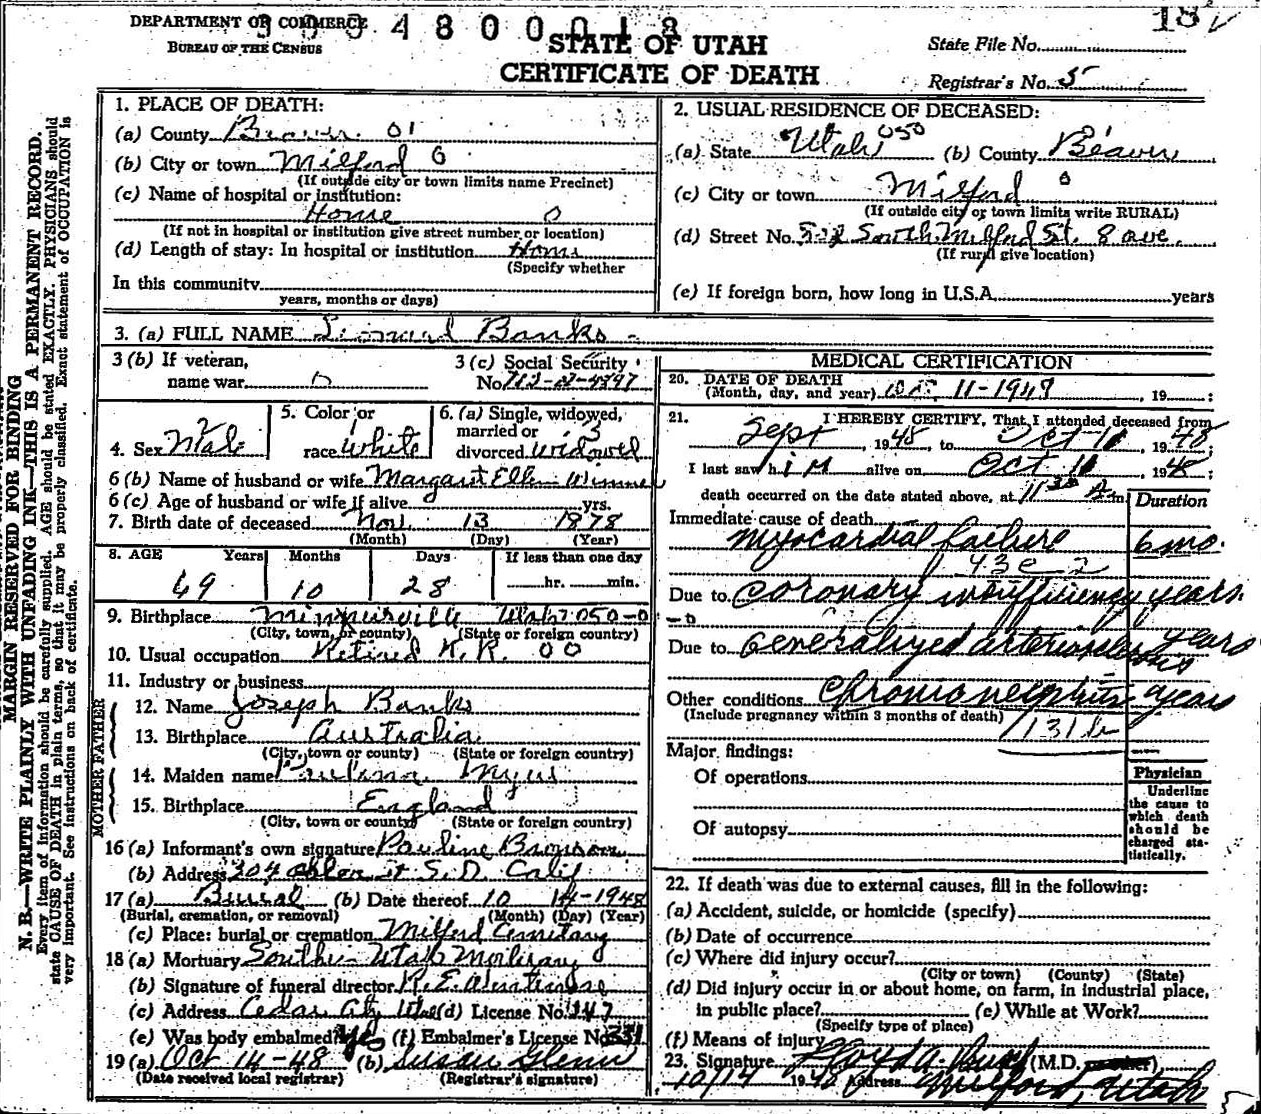 DEPARTMENT OF COMMERCE
BUREAU OF THE CENSUS
4 8 0 0 0 1 8
STATE OF UTAH
CERTIFICATE OF DEATH
18
State File No.
Registrar's No. 5
MARGIN RESERVED FOR BINDING
N. B.—WRITE PLAINLY WITH UNFADING INK—THIS IS A PERMANENT RECORD.
Every item of information should be carefully supplied. AGE should be stated EXACTLY. PHYSICIANS should
state CAUSE OF DEATH in plain terms, so that it may be properly classified. Exact statement of OCCUPATION is
very important. See instructions on back of certificate.
1. PLACE OF DEATH:
(a) County Beaver 01
(b) City or town Milford 0
(If outside city or town limits name Precinct)
(c) Name of hospital or institution:
Home 0
(If not in hospital or institution give street number or location)
(d) Length of stay: In hospital or institution Home
(Specify whether
In this community
years, months or days)
2. USUAL RESIDENCE OF DECEASED:
(a) State Utah 050 (b) County Beaver
(c) City or town Milford 0
(If outside city or town limits write RURAL)
(d) Street No. South Milford St. 8 ave.
(If rural give location)
(e) If foreign born, how long in U.S.A. years
3. (a) FULL NAME Banks
3 (b) If veteran,
name war
3 (c) Social Security
No.
4. Sex Male
5. Color or
race White
6. (a) Single, widowed,
married or 3
divorced Widowed
6 (b) Name of husband or wife Margaret Ellen
6 (c) Age of husband or wife if alive yrs.
7. Birth date of deceased Nov. 13 1878
(Month) (Day) (Year)
8. AGE Years Months Days If less than one day
69 10 28 hr. min.
9. Birthplace Minersville Utah 050-0
(City, town, or county) (State or foreign country)
10. Usual occupation Retired R.R. 00
11. Industry or business
FATHER
12. Name Joseph Banks
13. Birthplace Australia
(City, town or county) (State or foreign country)
MOTHER
14. Maiden name
15. Birthplace England
(City, town or county) (State or foreign country)
16 (a) Informant's own signature Pauline
(b) Address 304 St S.D. Calif
17 (a) Burial (b) Date thereof 10 14-1948
(Burial, cremation, or removal) (Month) (Day) (Year)
(c) Place: burial or cremation Milford Cemetary
18 (a) Mortuary Southern Utah Mortuary
(b) Signature of funeral director R. E.
(c) Address Cedar City Utah (d) License No. 147
(e) Was body embalmed Yes (f) Embalmer's License No. 331
19 (a) Oct 14-48 (b) Susan Glenn
(Date received local registrar) (Registrar's signature)
MEDICAL CERTIFICATION
20. DATE OF DEATH
(Month, day, and year) Oct. 11-1948, 19 ;
21. I HEREBY CERTIFY, That I attended deceased from
Sept, 1948, to Oct 10, 1948;
I last saw him alive on Oct 10 1948;
death occurred on the date stated above, at 11 30 A m
Duration
Immediate cause of death
Myocardial failure 6 mo.
93c-2
Due to Coronary insufficiency years.
Due to Generalized arteriosclerosis years
Other conditions Chronic nephritis years
(Include pregnancy within 3 months of death)
131b
Major findings:
Of operations
Of autopsy
Physician
Underline
the cause to
which death
should be
charged sta-
tistically.
22. If death was due to external causes, fill in the following:
(a) Accident, suicide, or homicide (specify)
(b) Date of occurrence
(c) Where did injury occur?
(City or town) (County) (State)
(d) Did injury occur in or about home, on farm, in industrial place,
in public place? (e) While at Work?
(Specify type of place)
(f) Means of injury
23. Signature (M.D.
10/14 1948 Address Milford, Utah